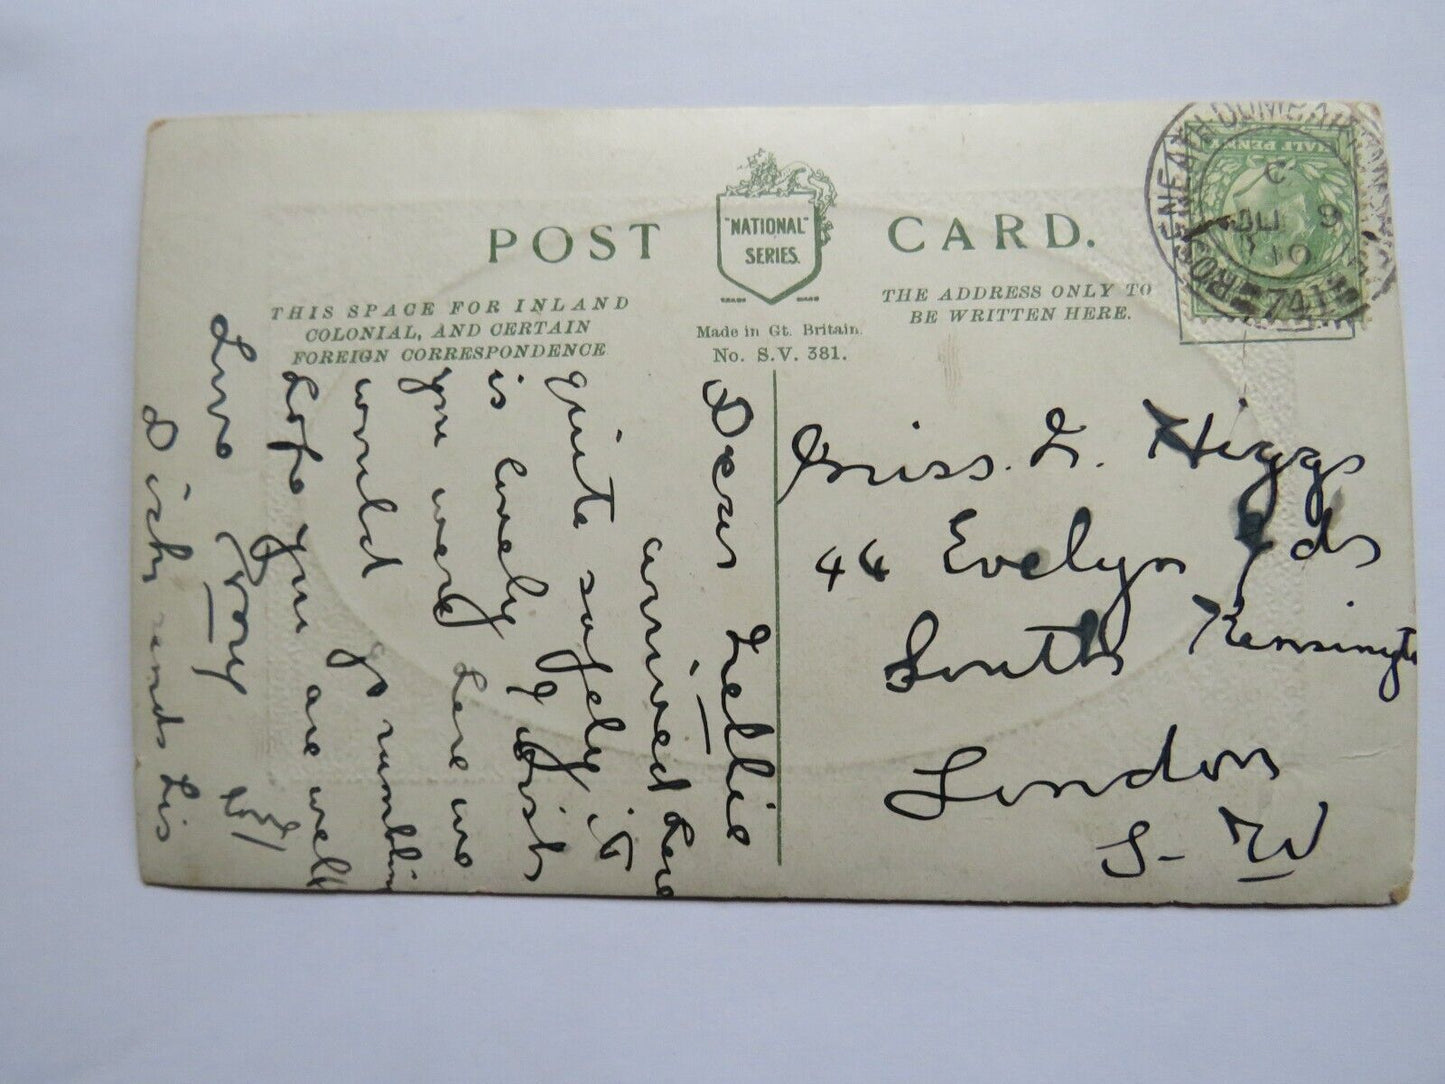 POST CARD.
"NATIONAL"
SERIES.
THIS SPACE FOR INLAND
COLONIAL, AND CERTAIN
FOREIGN CORRESPONDENCE
Made in Gt. Britain.
No. S.V. 381.
THE ADDRESS ONLY TO
BE WRITTEN HERE.
HALF PENNY
ROSENEATH DUMBARTON
C
JU 9
10
Dear Nellie
arrived here
quite safely it
is lovely I wish
you were here we
would go rambling
hope you are well
Love
Miss. N. Higgs
44 Evelyn Gds
South Kensington
London
S-W